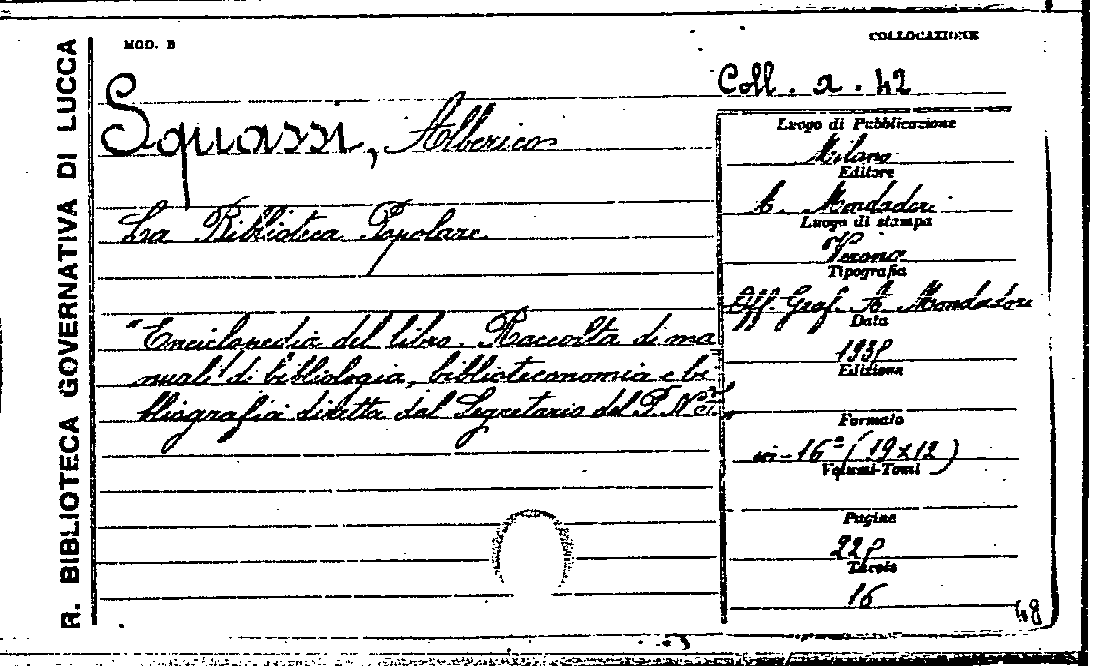 R. BIBLIOTECA GOVERNATIVA DI LUCCA
MOD. B
COLLOCAZIONE
Coll. a. 42
Squassi, Alberico
La Biblioteca Popolare.
"Enciclopedia del libro. Raccolta di ma
nuali di bibliologia, biblioteconomia e bi-
bliografia diretta dal Segretario del P. N.
Luogo di Pubblicazione
Milano
Editore
A. Mondadori
Luogo di stampa
Verona
Tipografia
Off. Graf. A. Mondadori
Data
193
Edizione
Formato
in-16° (19x12)
Volumi-Tomi
Pagine
22
Tavole
16
48